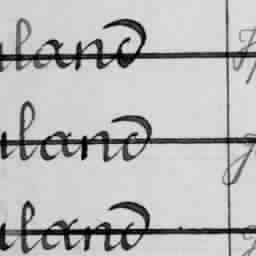 uland
uland
uland